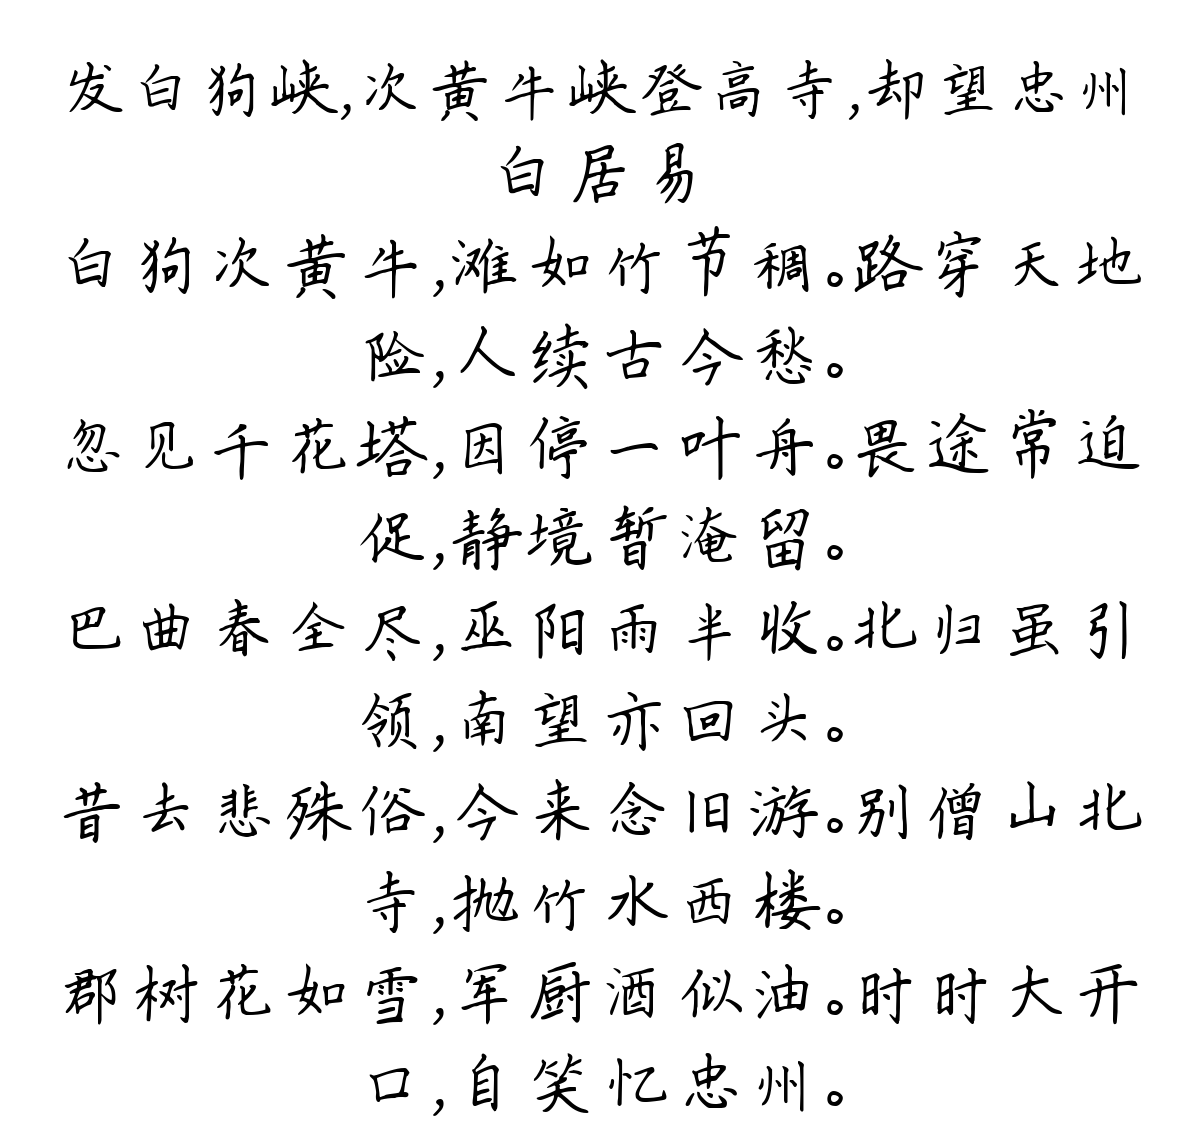 发白狗峡,次黄牛峡登高寺,却望忠州
白居易
白狗次黄牛,滩如竹节稠。路穿天地
险,人续古今愁。
忽见千花塔,因停一叶舟。畏途常迫
促,静境暂淹留。
巴曲春全尽,巫阳雨半收。北归虽引
领,南望亦回头。
昔去悲殊俗,今来念旧游。别僧山北
寺,抛竹水西楼。
郡树花如雪,军厨酒似油。时时大开
口,自笑忆忠州。